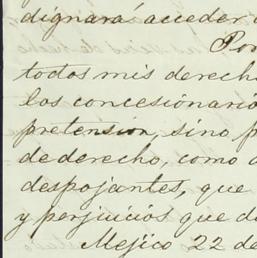 dignará acceder
Por
todos mis derecho
los concesionario
pretension, sino p
de derecho, como
despojantes, que
y perjuicios que d
Mejico 22 de